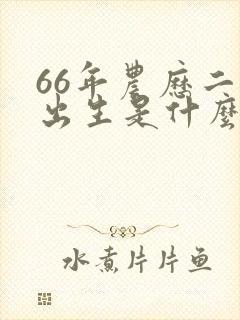 66年農歷二
出生是什麼
水煮片片鱼